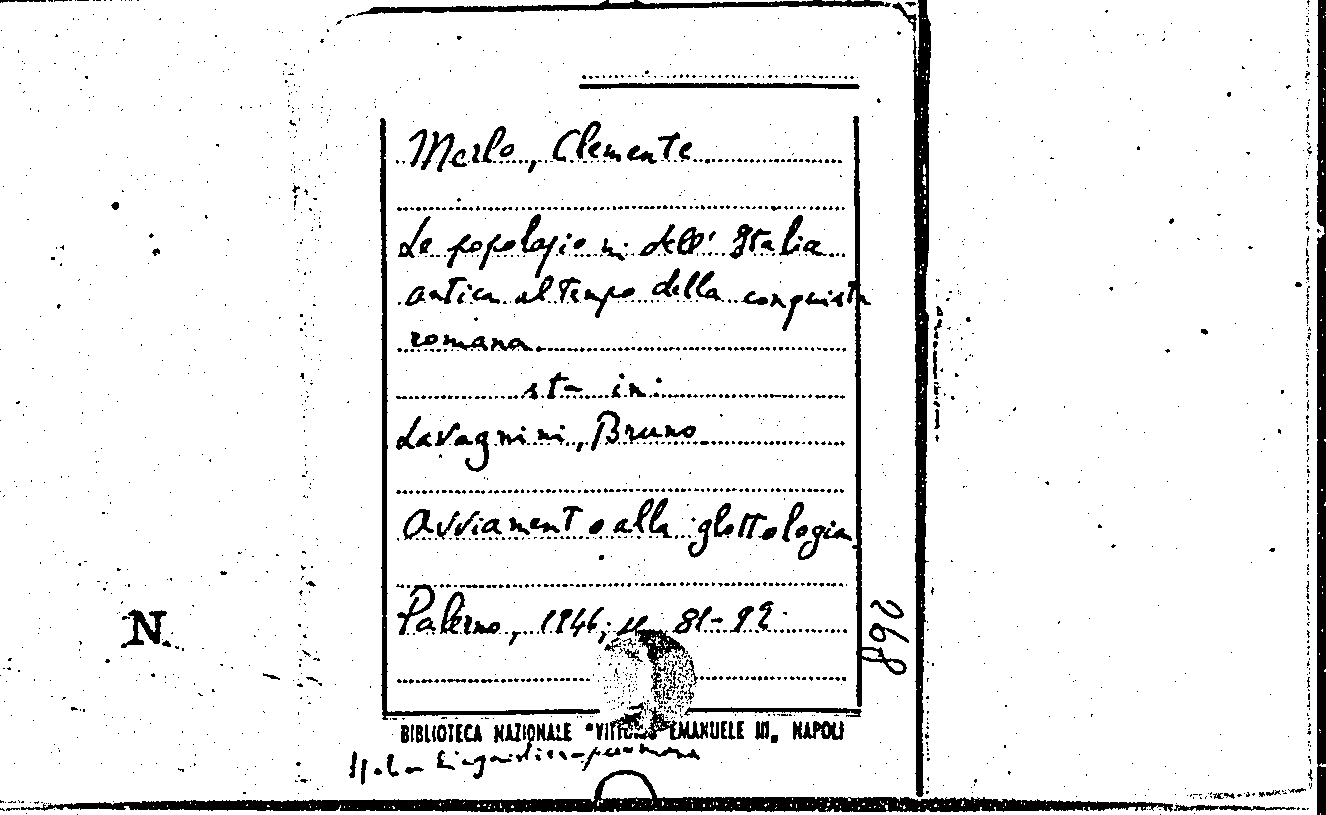 Merlo, Clemente
Le popolazioni dell'Italia
antica al tempo della conquista
romana.
sta in:
Lavagnini, Bruno
Avviamento alla glottologia
Palermo, 1946; pp. 81-92
268
N.
BIBLIOTECA NAZIONALE "VITTORIO EMANUELE III, NAPOLI
Italia